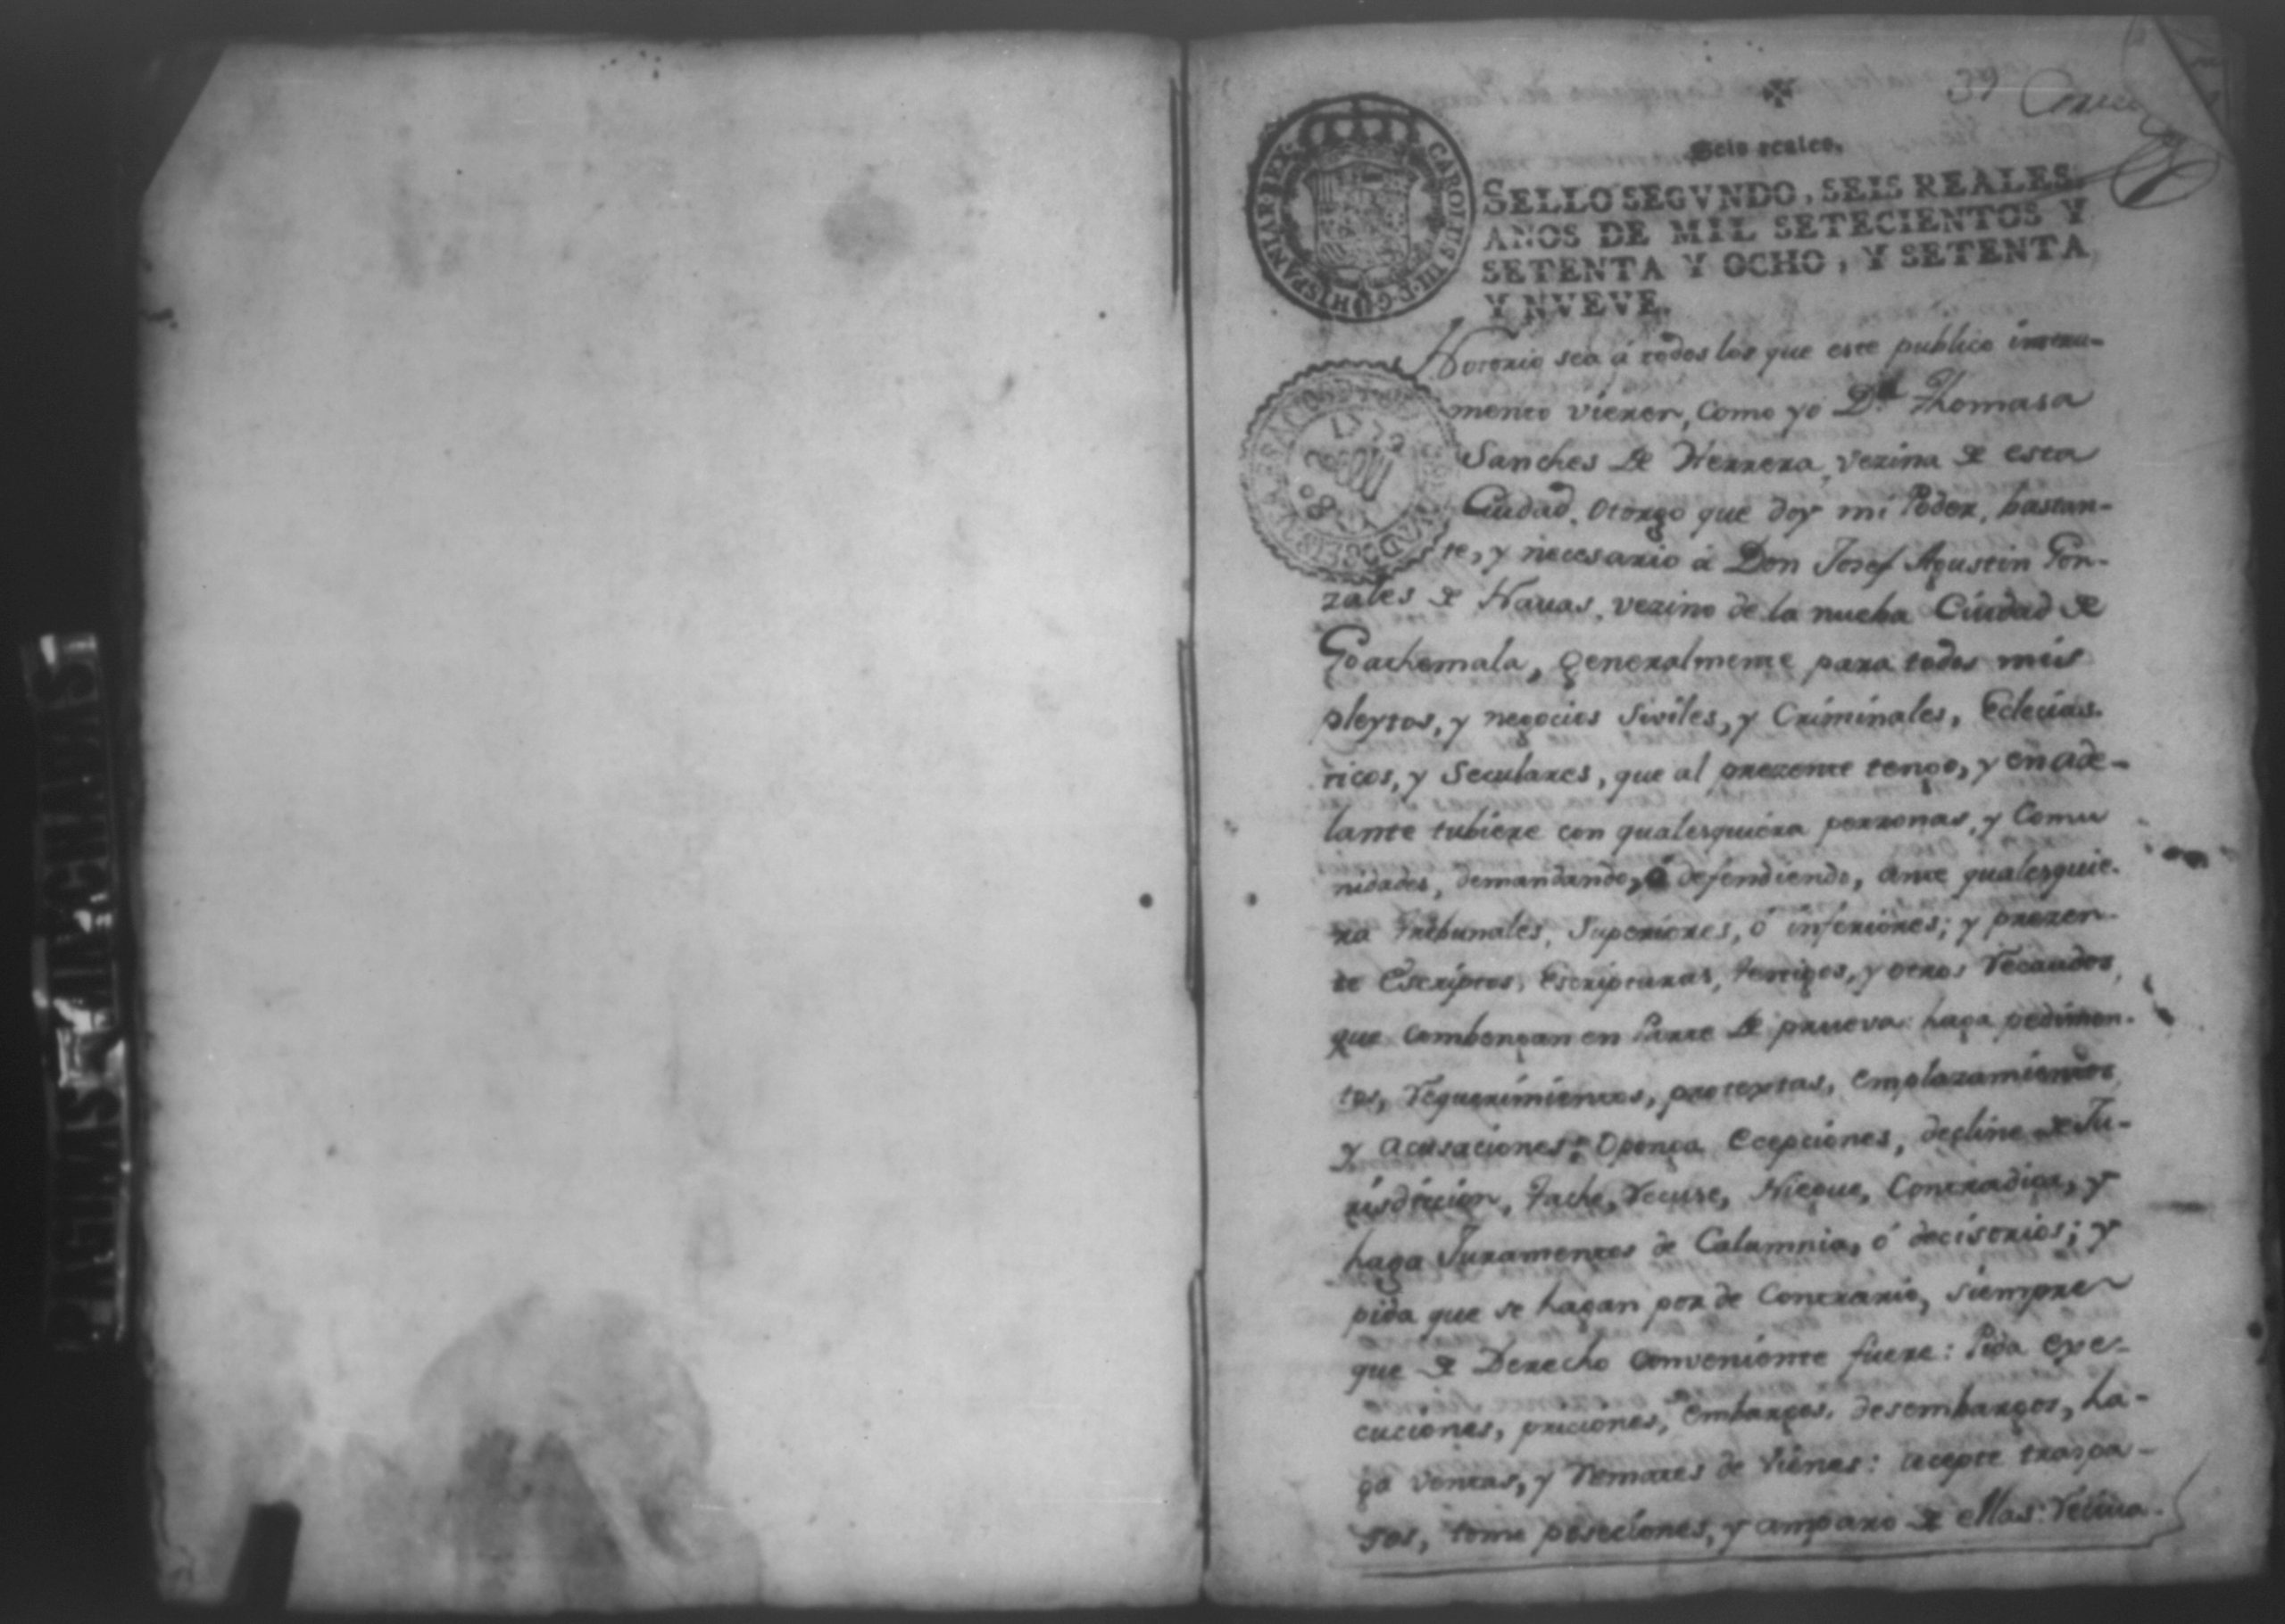 PAGINAS EN BLANCO
39
Seis reales.
SELLO SEGVNDO, SEIS REALES,
AÑOS DE MIL SETECIENTOS Y
SETENTA Y OCHO, Y SETENTA
Y NVEVE.
CAROLUS III D G HISPANIAR REX
Notorio sea á todos los que este publico instru-
mento vieren, como yo D.ª Thomasa
Sanches de Herrera, vezina de esta
Ciudad, otorgo que doy mi Poder, bastan-
te, y necesario á Don Josef Agustin Gon-
zales de Navas, vezino de la nueba Ciudad de
Goathemala, generalmente para todos mis
pleytos, y negocios Siviles, y Criminales, Eclecias-
ticos, y Seculares, que al prezente tengo, y en ade-
lante tubiere con qualesquiera perzonas, y Comu
nidades, demandando, ó defendiendo, ante qualesquie-
ra Tribunales, Superiores, ó inferiores; y prezen-
te Escriptos, Escripturas, testigos, y otros recaudos,
que combengan en Parte de prueva: haga pedimen-
tos, requerimientos, protextas, emplazamientos
y acusaciones: Oponga Ecepciones, decline de Ju-
risdicion, tache, recuse, Niegue, Contradiga, y
haga Juramentos de Calumnia, ó decisorios; y
pida que se hagan por de Contrario, siempre
que de Derecho conveniente fuere: Pida exe-
cuciones, priciones, embargos, desembargos, ha-
ga ventas, y remates de vienes: acepte traspa-
sos, tome poseciones, y amparo de ellas: